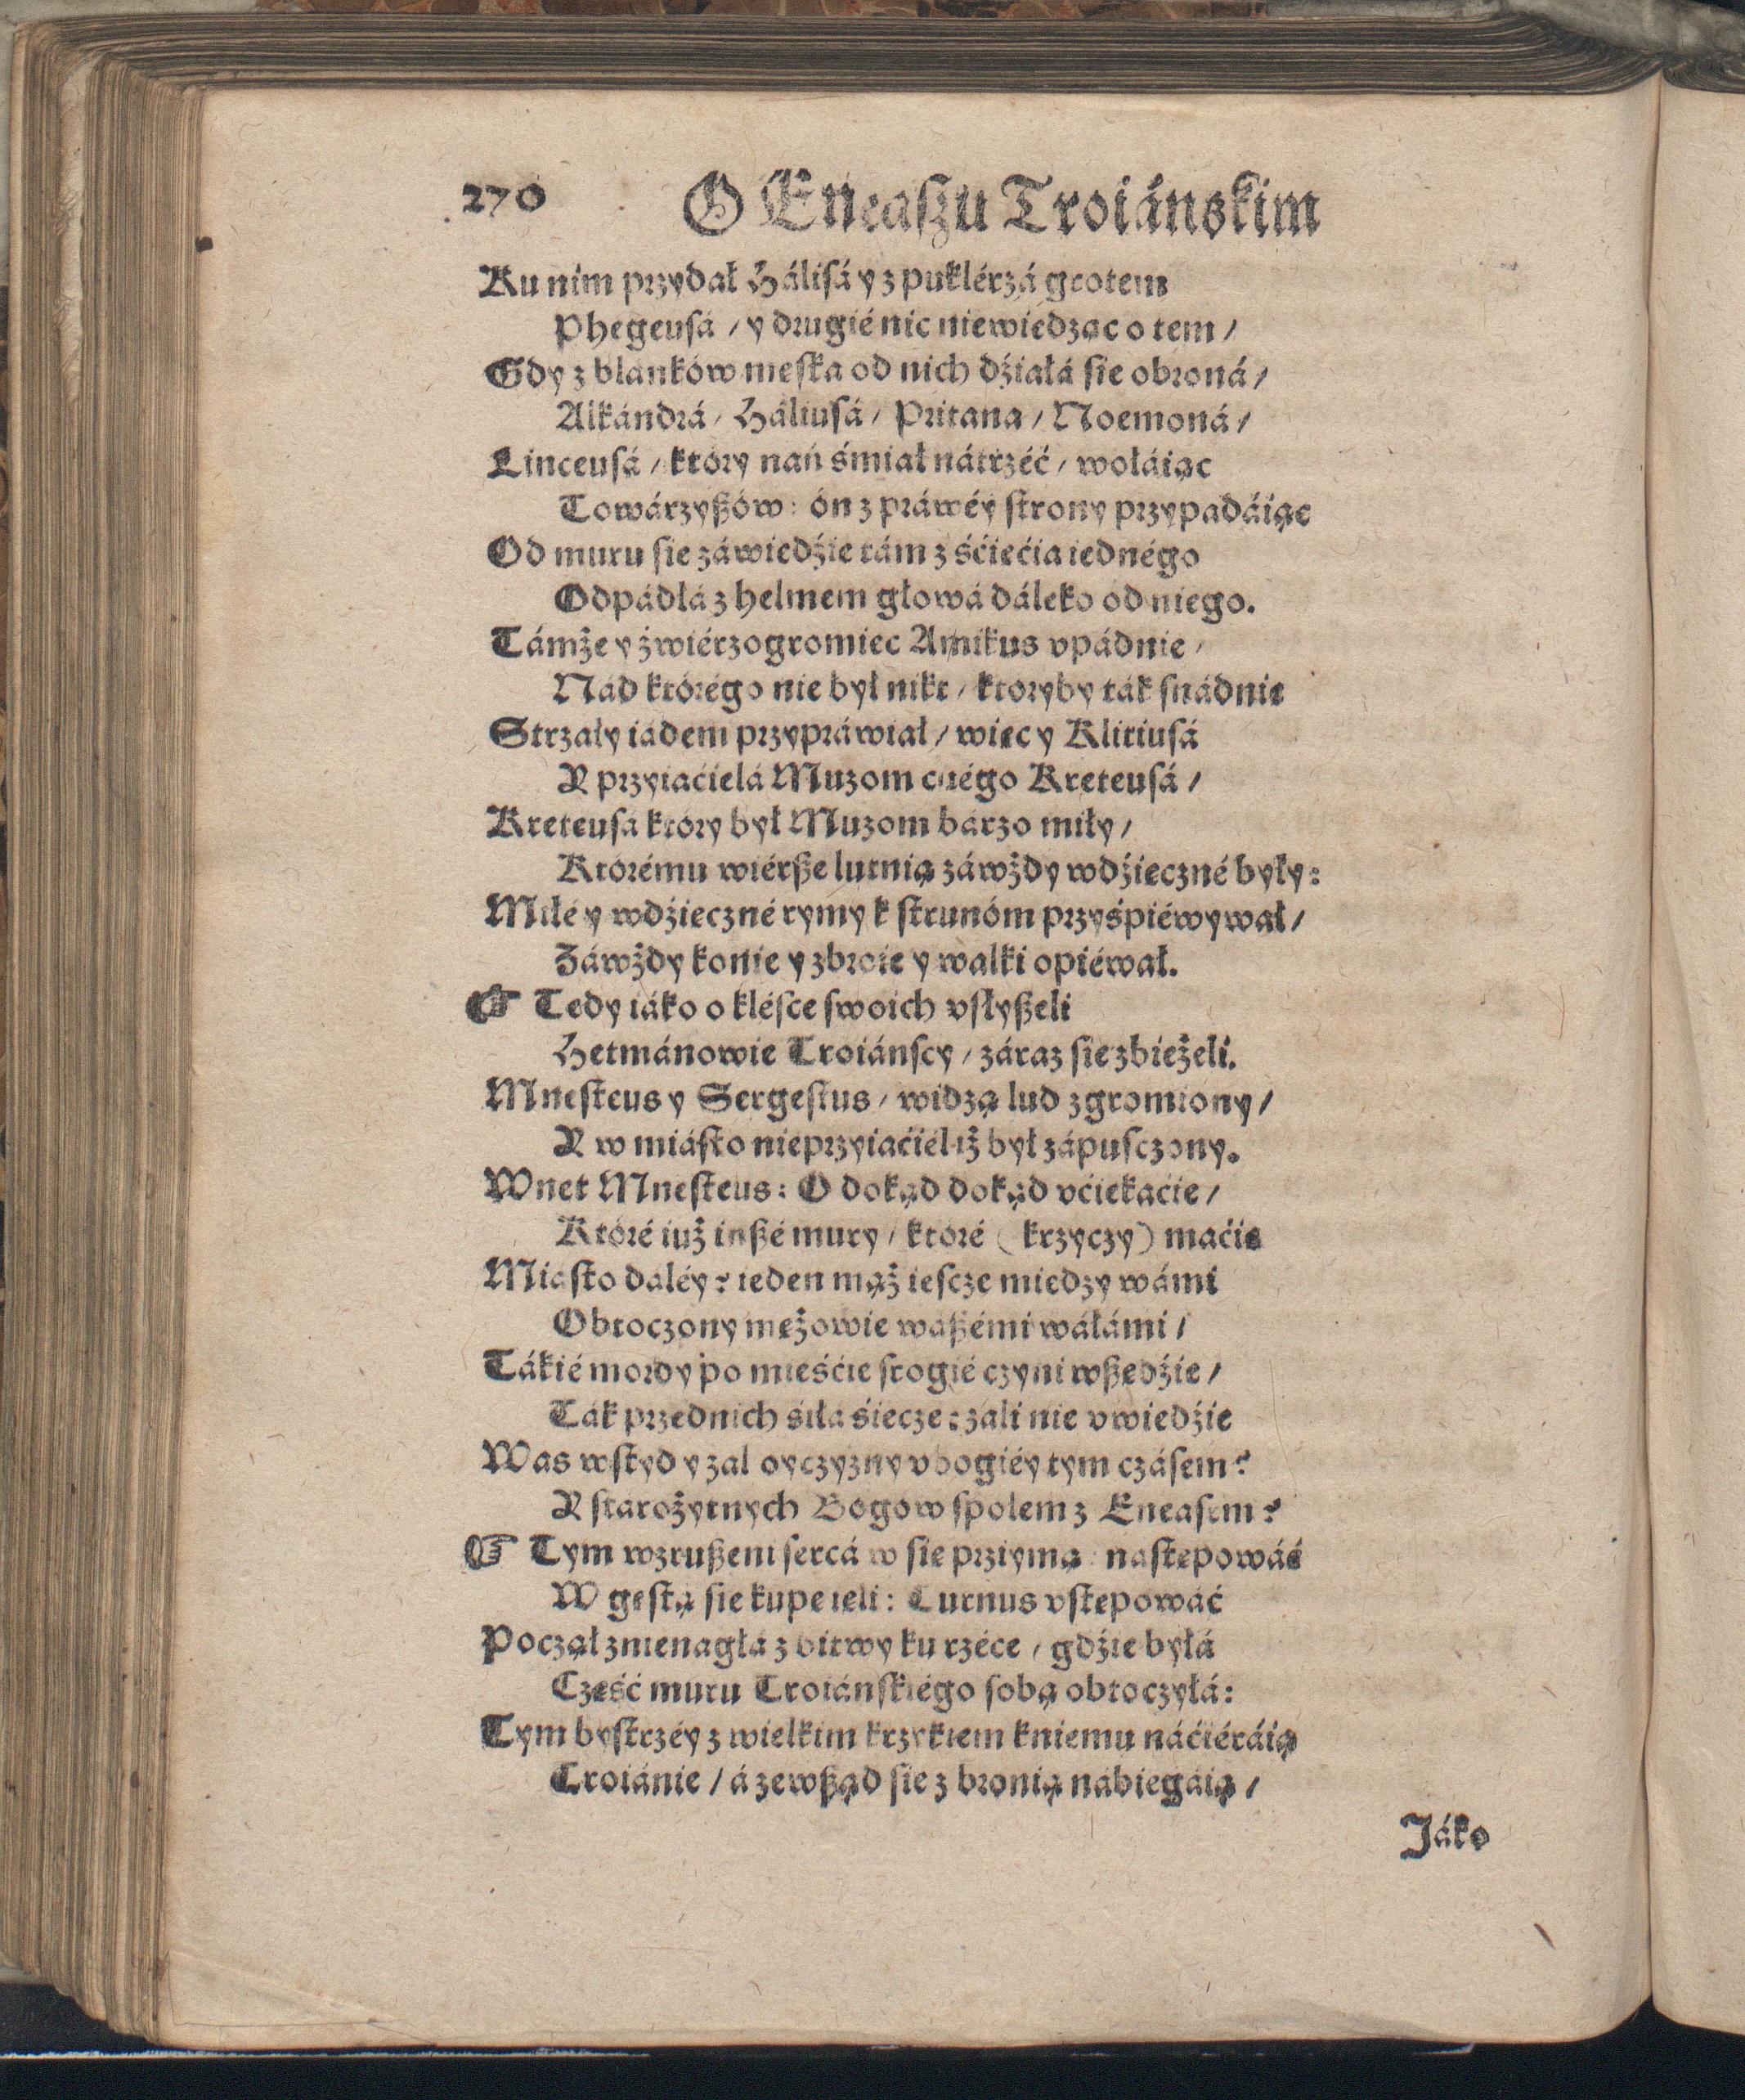 270 O Eneaszu Troiánskim
Ku nim przydał Hálisá y z puklérzá grotem
Phegeusá / y drugié nic niewiedząc o tem /
Gdy z blanków meska od nich dźiałá sie obroná /
Alkándrá / Háliusá / Pritana / Noemoná /
Linceusá / który nań śmiał nátrzéć / wołáiąc
Towárzyßów: ón z práwéy strony przypadáiąc
Od muru sie záwiedźie tám z śćiećia iednégo
Odpádłá z helmem głowá dáleko od niego.
Támże y źwiérzogromiec Amikus vpádnie /
Nád którégo nie był nikt / ktoryby ták snádnie
Strzały iádem przypráwiał / wiec y Klitiusá
Y przyiaćielá Muzom cnégo Kreteusá /
Kreteusá który był Muzom bárzo miły /
Którému wiérße lutnią záwżdy wdźieczné były:
Miłé y wdźieczné rymy k strunóm przyśpiéwywał /
Záwżdy konie y zbroie y walki opiéwał.
☞ Tedy iáko o klésce swoich vsłyßeli
Hetmánowie Troiánscy / záraz sie zbieżeli.
Mnesteus y Sergestus / widzą lud zgromiony /
Y w miásto nieprzyiaćiél iż był zápusczony.
Wnet Mnesteus: O dokąd dokąd vćiekaćie /
Któré iuż inßé mury / któré ( krzyczy ) maćie
Miasto daléy? ieden mąż iescze miedzy wámi
Obtoczony meżowie waßémi wáłámi /
Tákié mordy po mieśćie srogié czyni wßedźie /
Ták przednich śiła śiecze: zali nie vwiedźie
Was wstyd y zal oyczyzny vbogiéy tym czásem?
Y starożytnych Bogow spolem z Eneasem?
☞ Tym wzrußeni sercá w sie prziymą: nastepowáć
W gestą sie kupe ieli: Turnus vstepowáć
Począł znienagłá z bitwy ku rzéce / gdźie byłá
Cześć muru Troiánskiégo sobą obtoczyłá:
Tym bystrzéy z wielkim krzykiem kniemu náćiéráią
Troiánie / á zewßąd sie z bronią nábiegáią /
Jáko